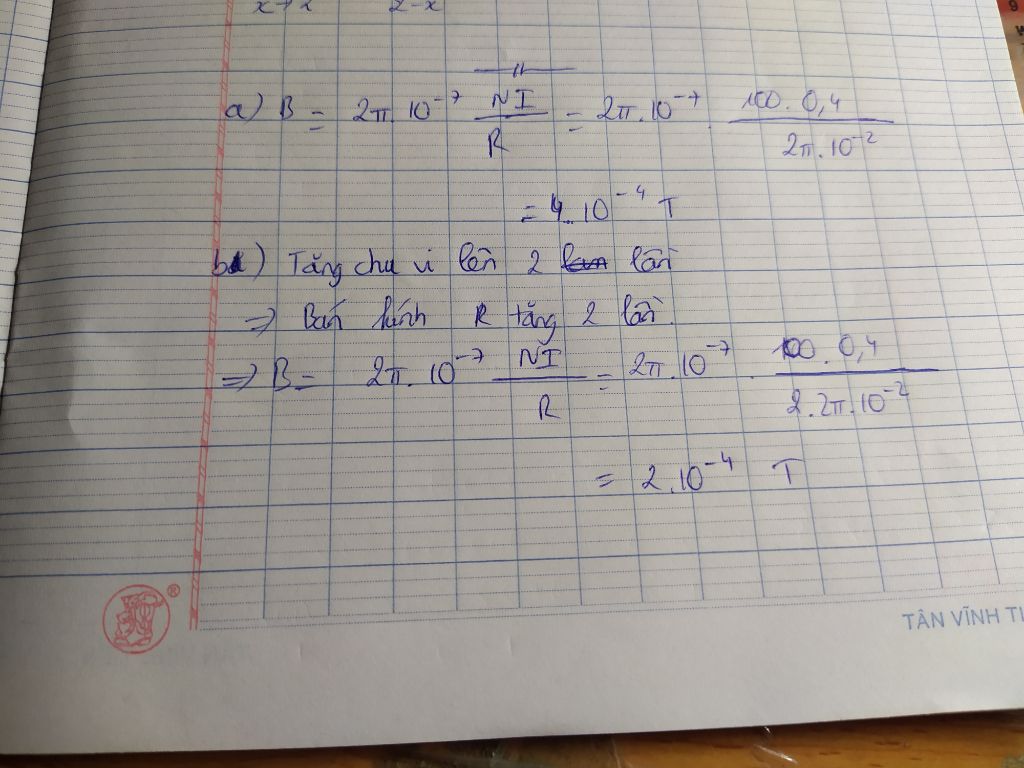 x→2 2-x
a) B = 2π.10⁻⁷ NI/R = 2π.10⁻⁷ . 100.0,4/2π.10⁻²
= 4.10⁻⁴ T
b) Tăng chu vi lên 2 lần
=> Bán kính R tăng 2 lần.
=> B = 2π.10⁻⁷ NI/R = 2π.10⁻⁷ . 100.0,4/2.2π.10⁻²
= 2.10⁻⁴ T
®
TÂN VĨNH TI